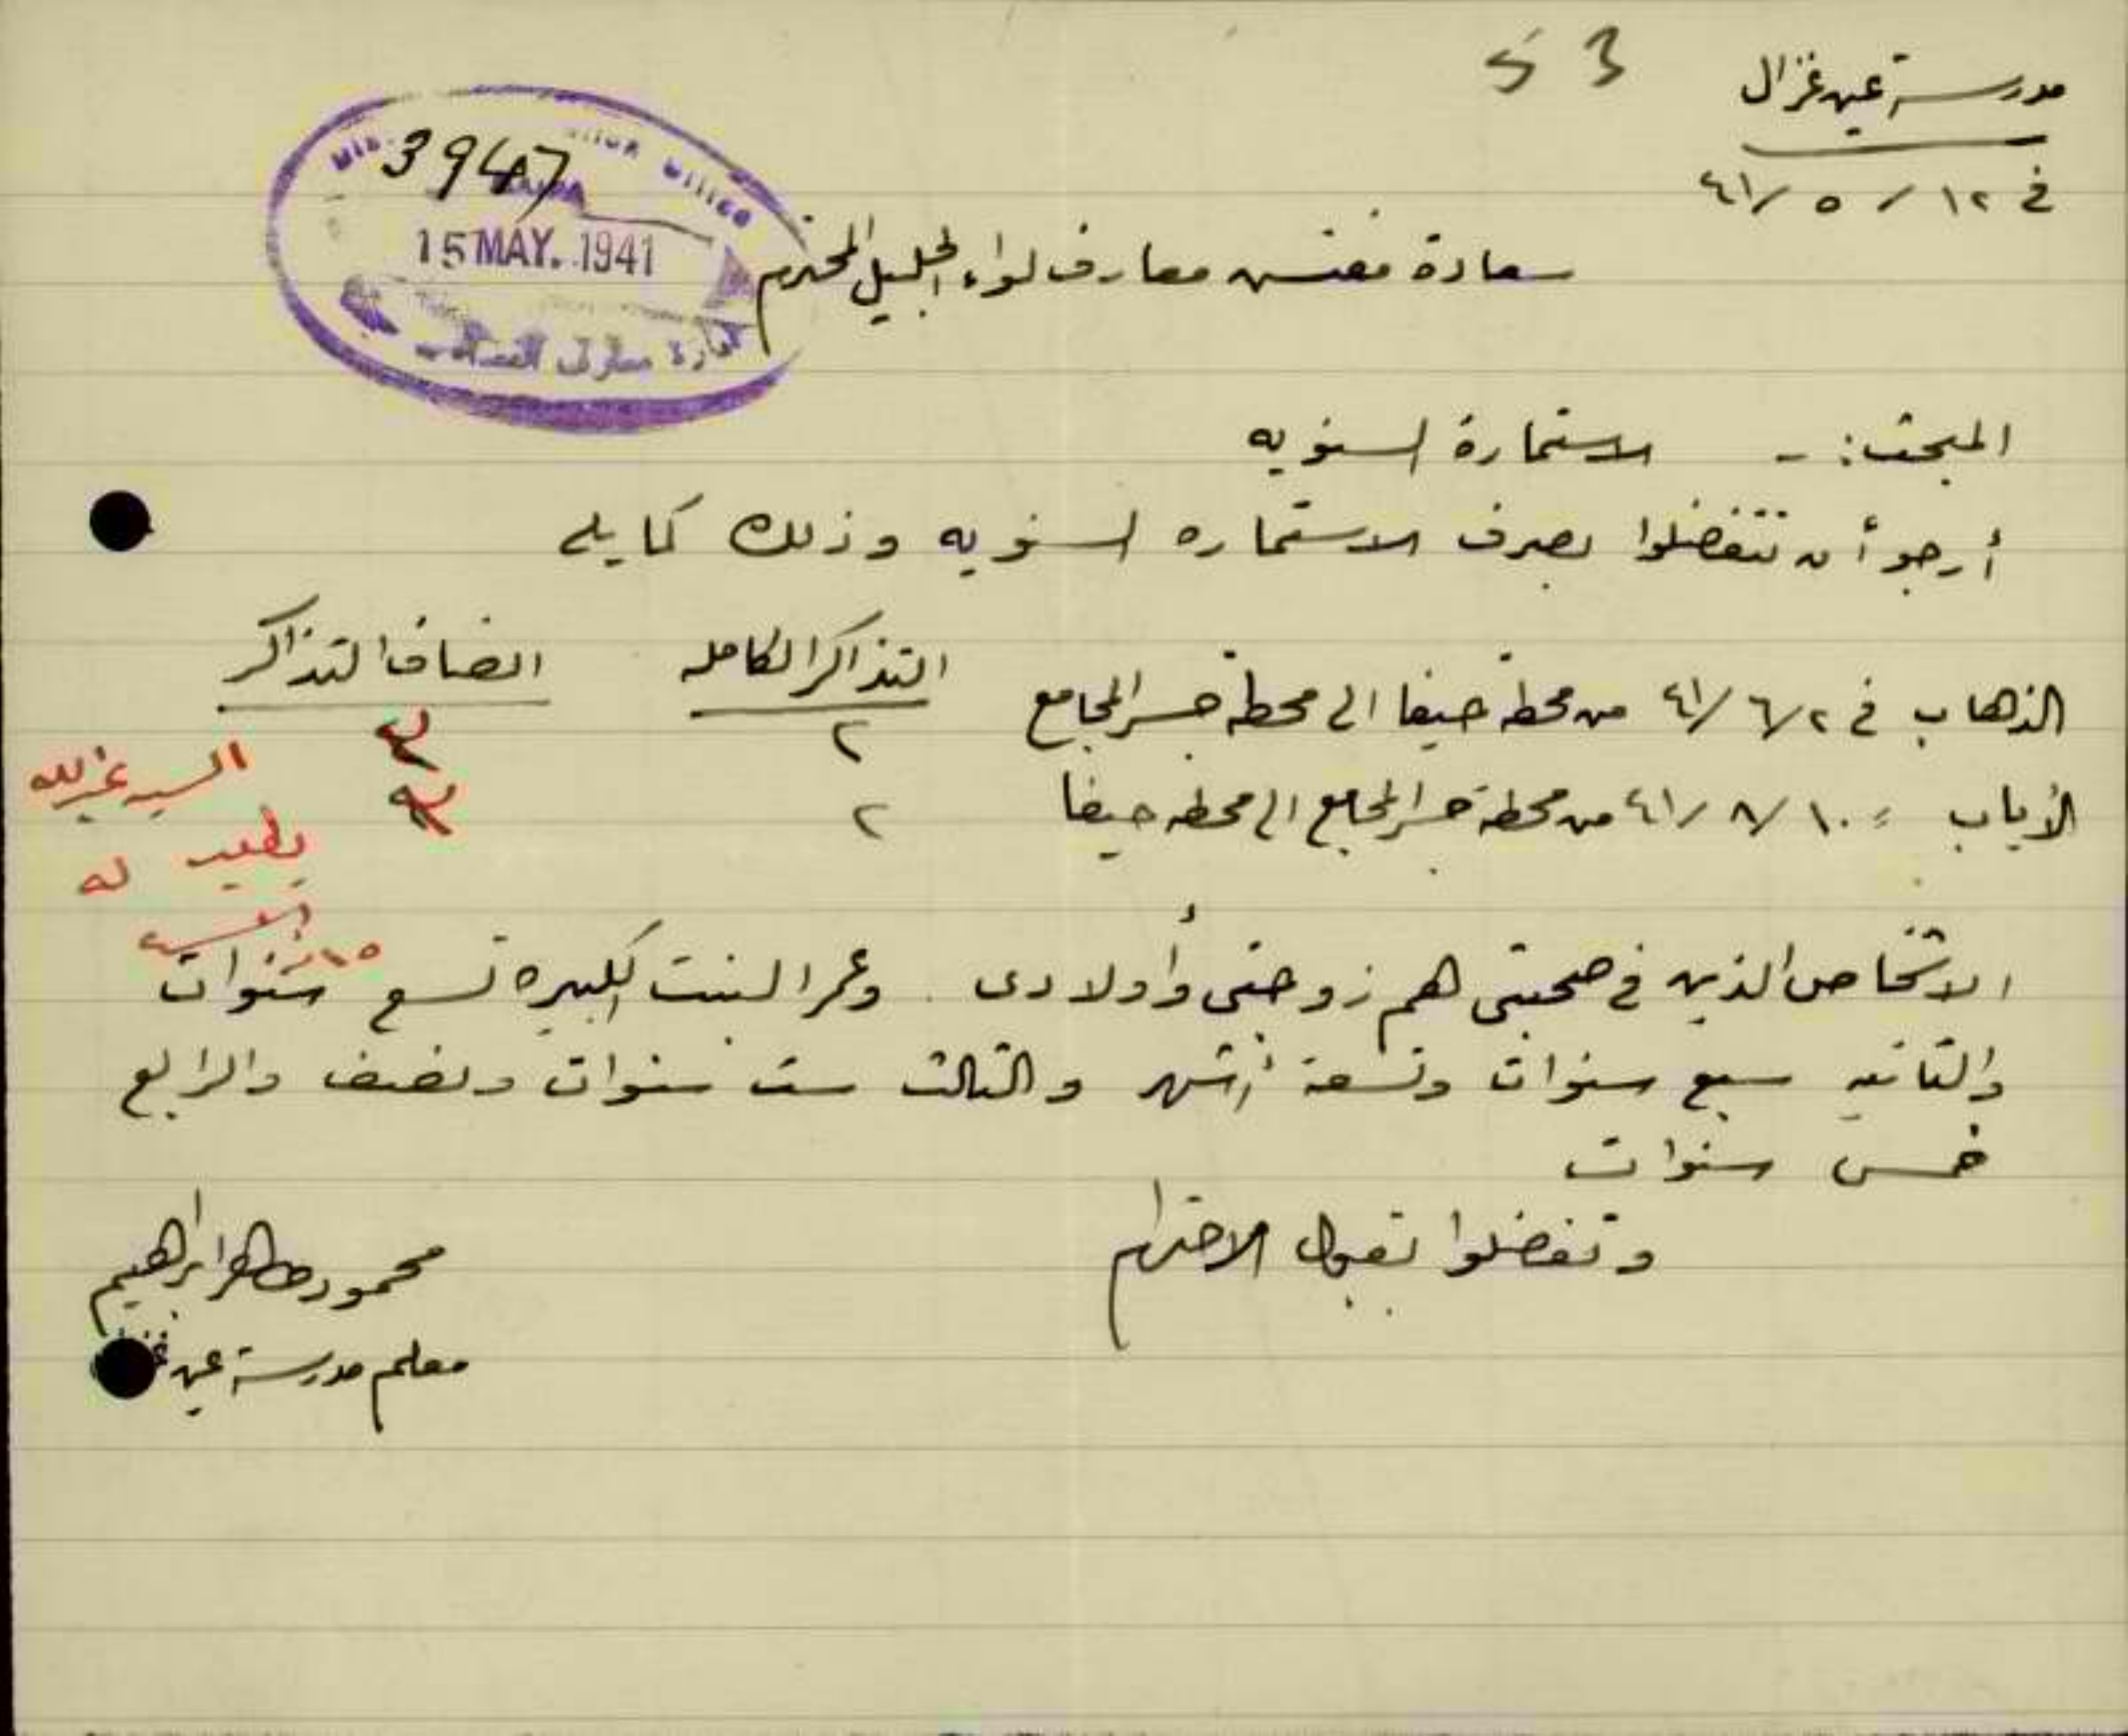 53
مدرسة عين غزال
في ١٢ / ٥ / ٤١
3947
15 MAY. 1941
سعادة مفتش معارف لواء الجليل المحترم
المبحث :- الاستمارة السنويه
أرجو أن تتفضلوا بصرف الاستماره السنويه وذلك كما يلي
التذاكر الكامله انصاف التذاكر
الذهاب في ٢/ ٦/ ٤١ من محطة حيفا الى محطة جسر المجامع ٢ ٣
الأياب = ١٠/ ٨/ ٤١ من محطة جسر المجامع الى محطه حيفا ٢ ٣
السيد
له
الاشخاص الذين في صحبتي هم زوجتي وأولادى . وعمر البنت الكبيره تسع سنوات
والثانيه سبع سنوات وتسعة أشهر والثالث ست سنوات ونصف والرابع
خمس سنوات
وتفضلوا بقبول الاحترام
محمود طاهر ابراهيم
معلم مدرسة عين